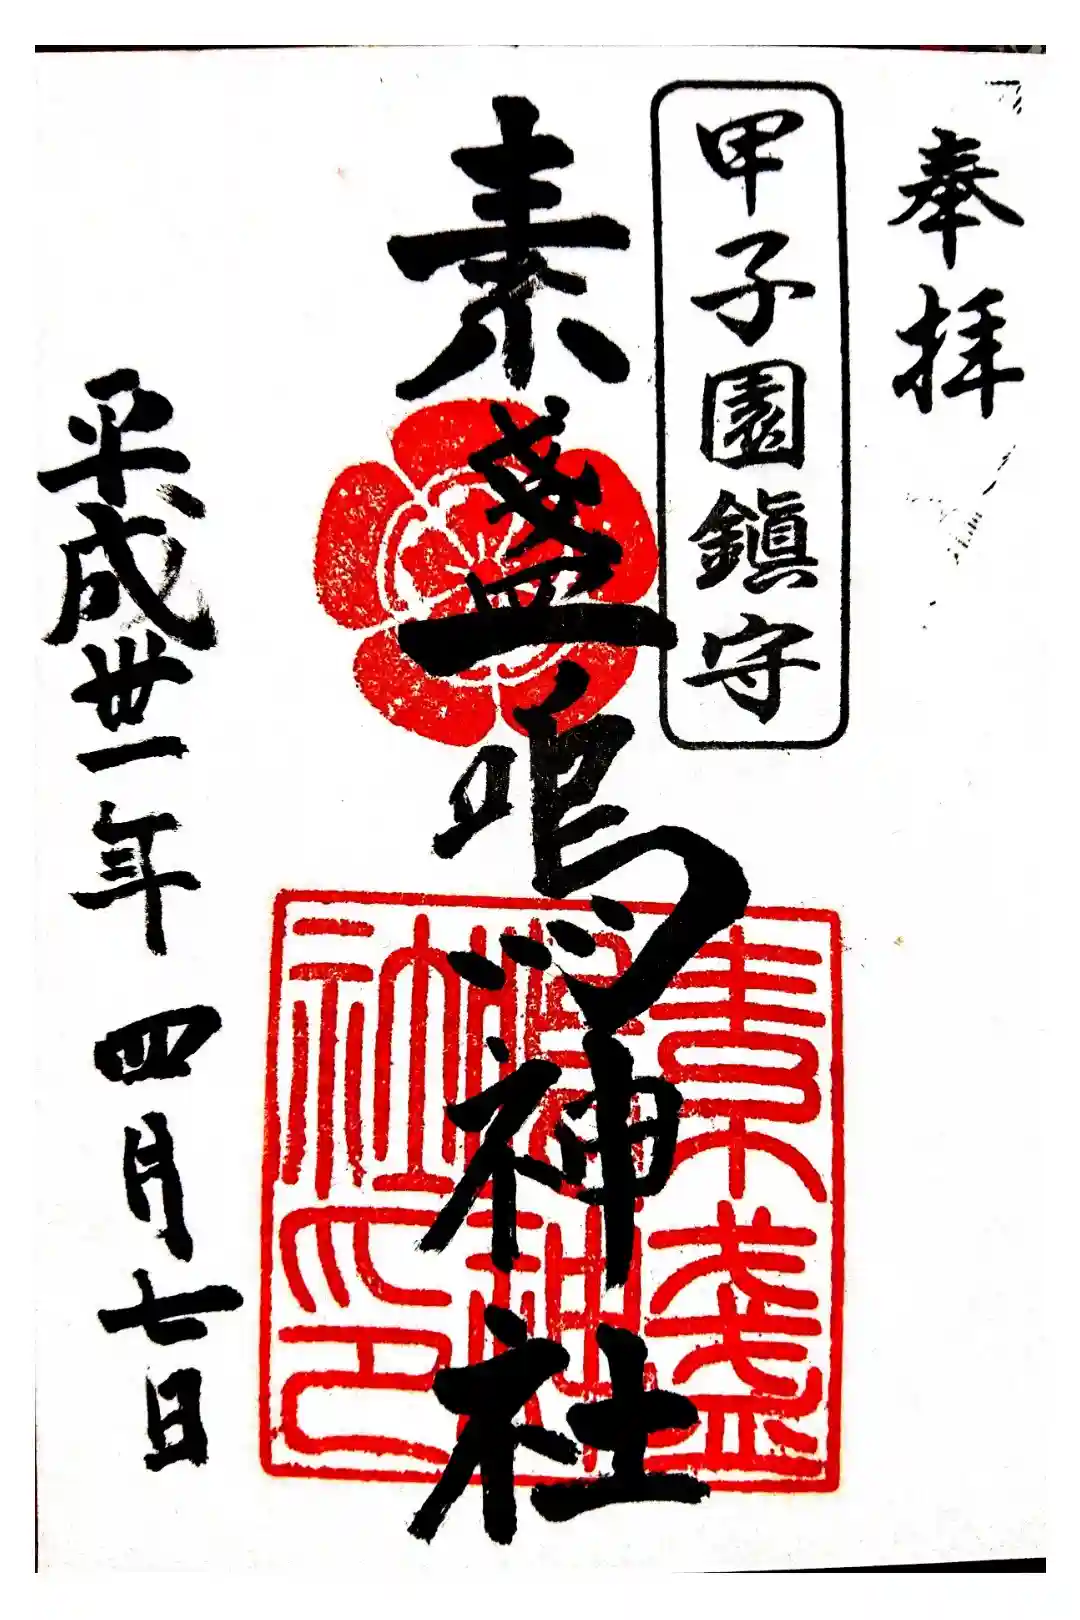 奉拝
甲子園鎮守
素盞嗚神社
平成丗一年 四月七日
素盞
嗚神
社印